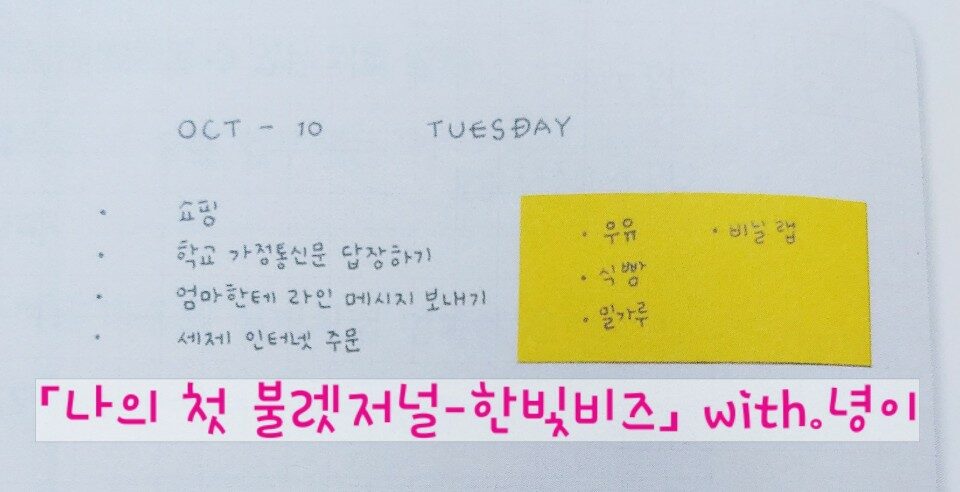 OCT - 10 TUESDAY
· 쇼핑
· 학교 가정통신문 답장하기
· 엄마한테 라인 메시지 보내기
· 세제 인터넷 주문
· 우유 · 비닐 랩
· 식빵
· 밀가루
「나의 첫 불렛저널-한빛비즈」 with。녕이